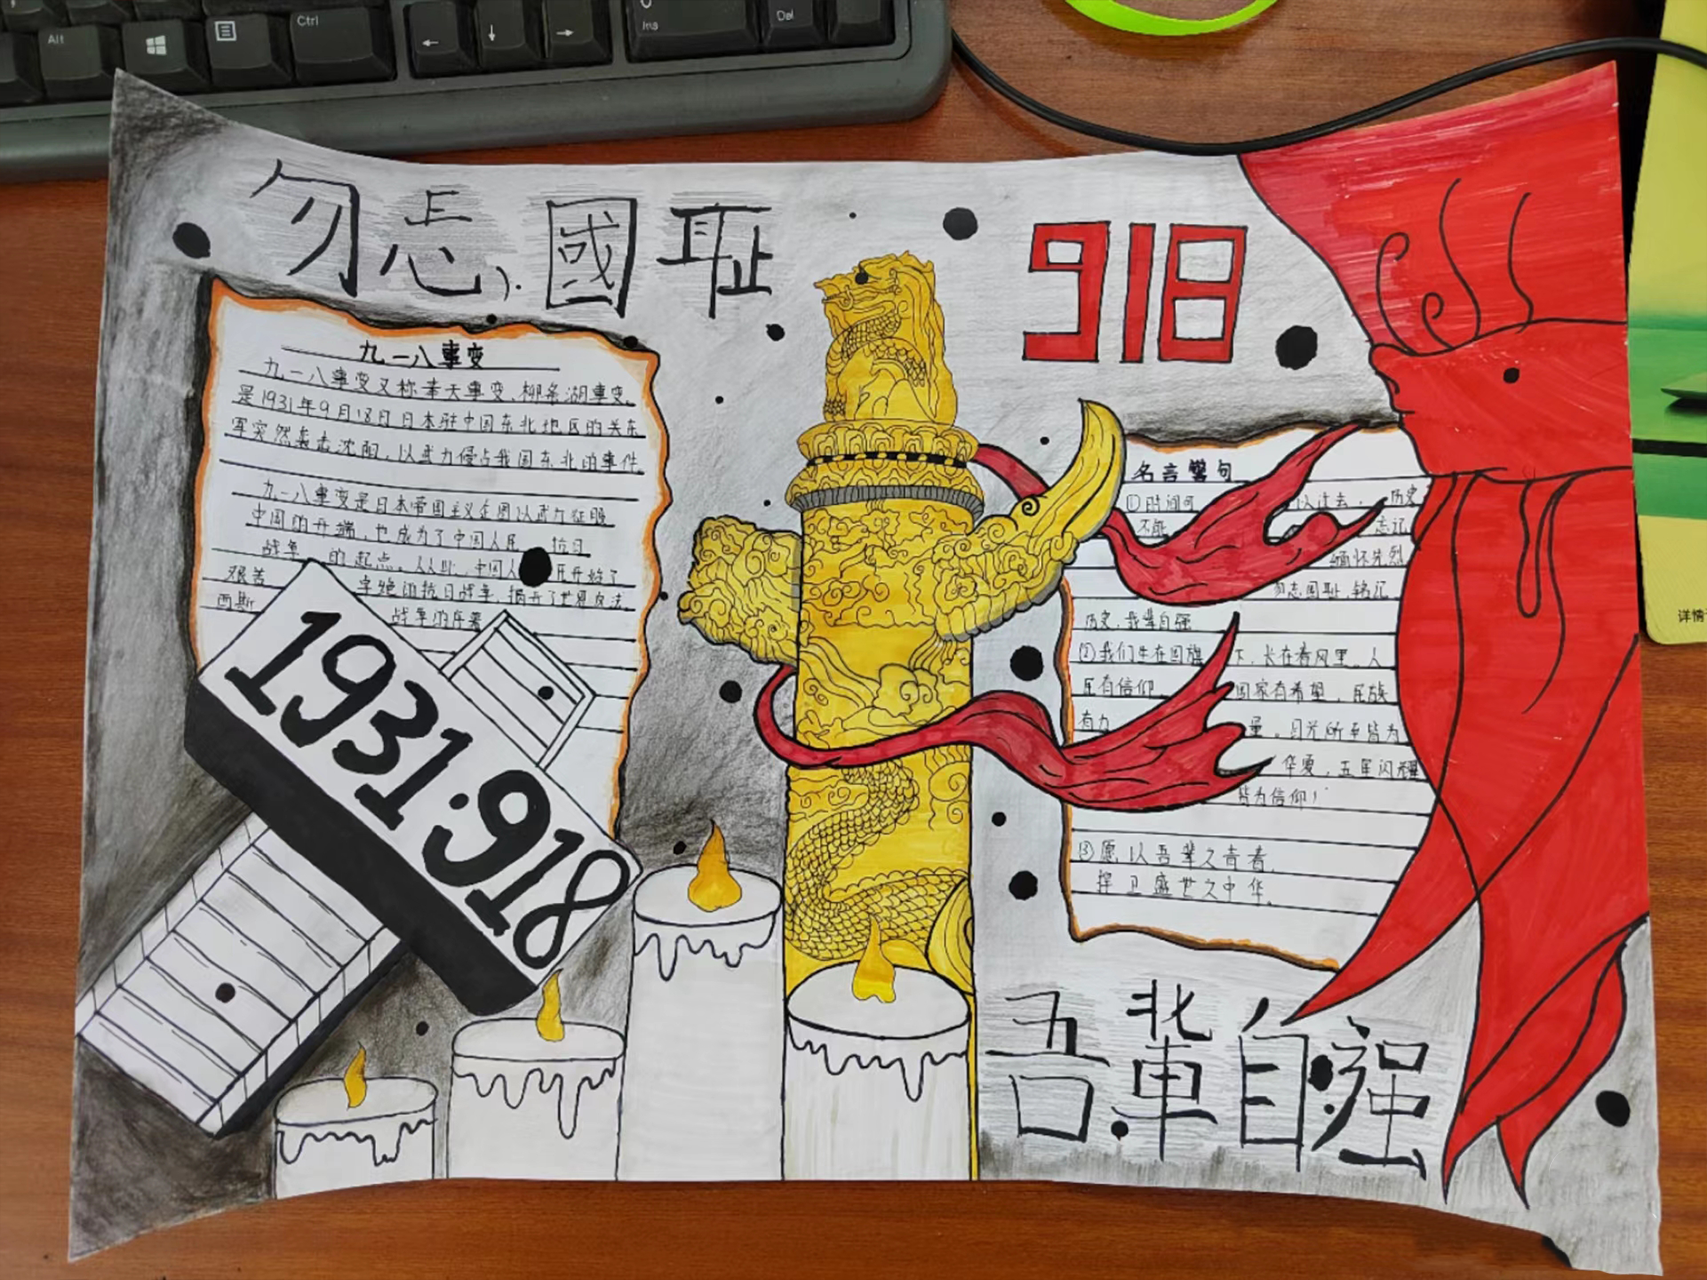 Alt
Ctrl
Ins
Del
勿忘國耻
918
九一八事变
九一八事变又称奉天事变、柳条湖事变,
是1931年9月18日日本驻中国东北地区的关东
军突然袭击沈阳,以武力侵占我国东北的事件
九一八事变是日本帝国主义企图以武力征服
中国的开端,也成为了中国人民 抗日
战争 的起点。从此,中国人 民开始了
艰苦 卓绝的抗日战争,揭开了世界反法
西斯 战争的序幕
1931.918
名言警句
①时间可 以过去, 历史
不能 忘记
缅怀先烈
勿忘国耻,铭记
历史,我辈自强
②我们生在国旗 下,长在春风里。人
民有信仰 国家有希望,民族
有力 量。目光所至皆为
华夏,五星闪耀
皆为信仰!
③愿以吾辈之青春,
捍卫盛世之中华。
吾辈自强
详情